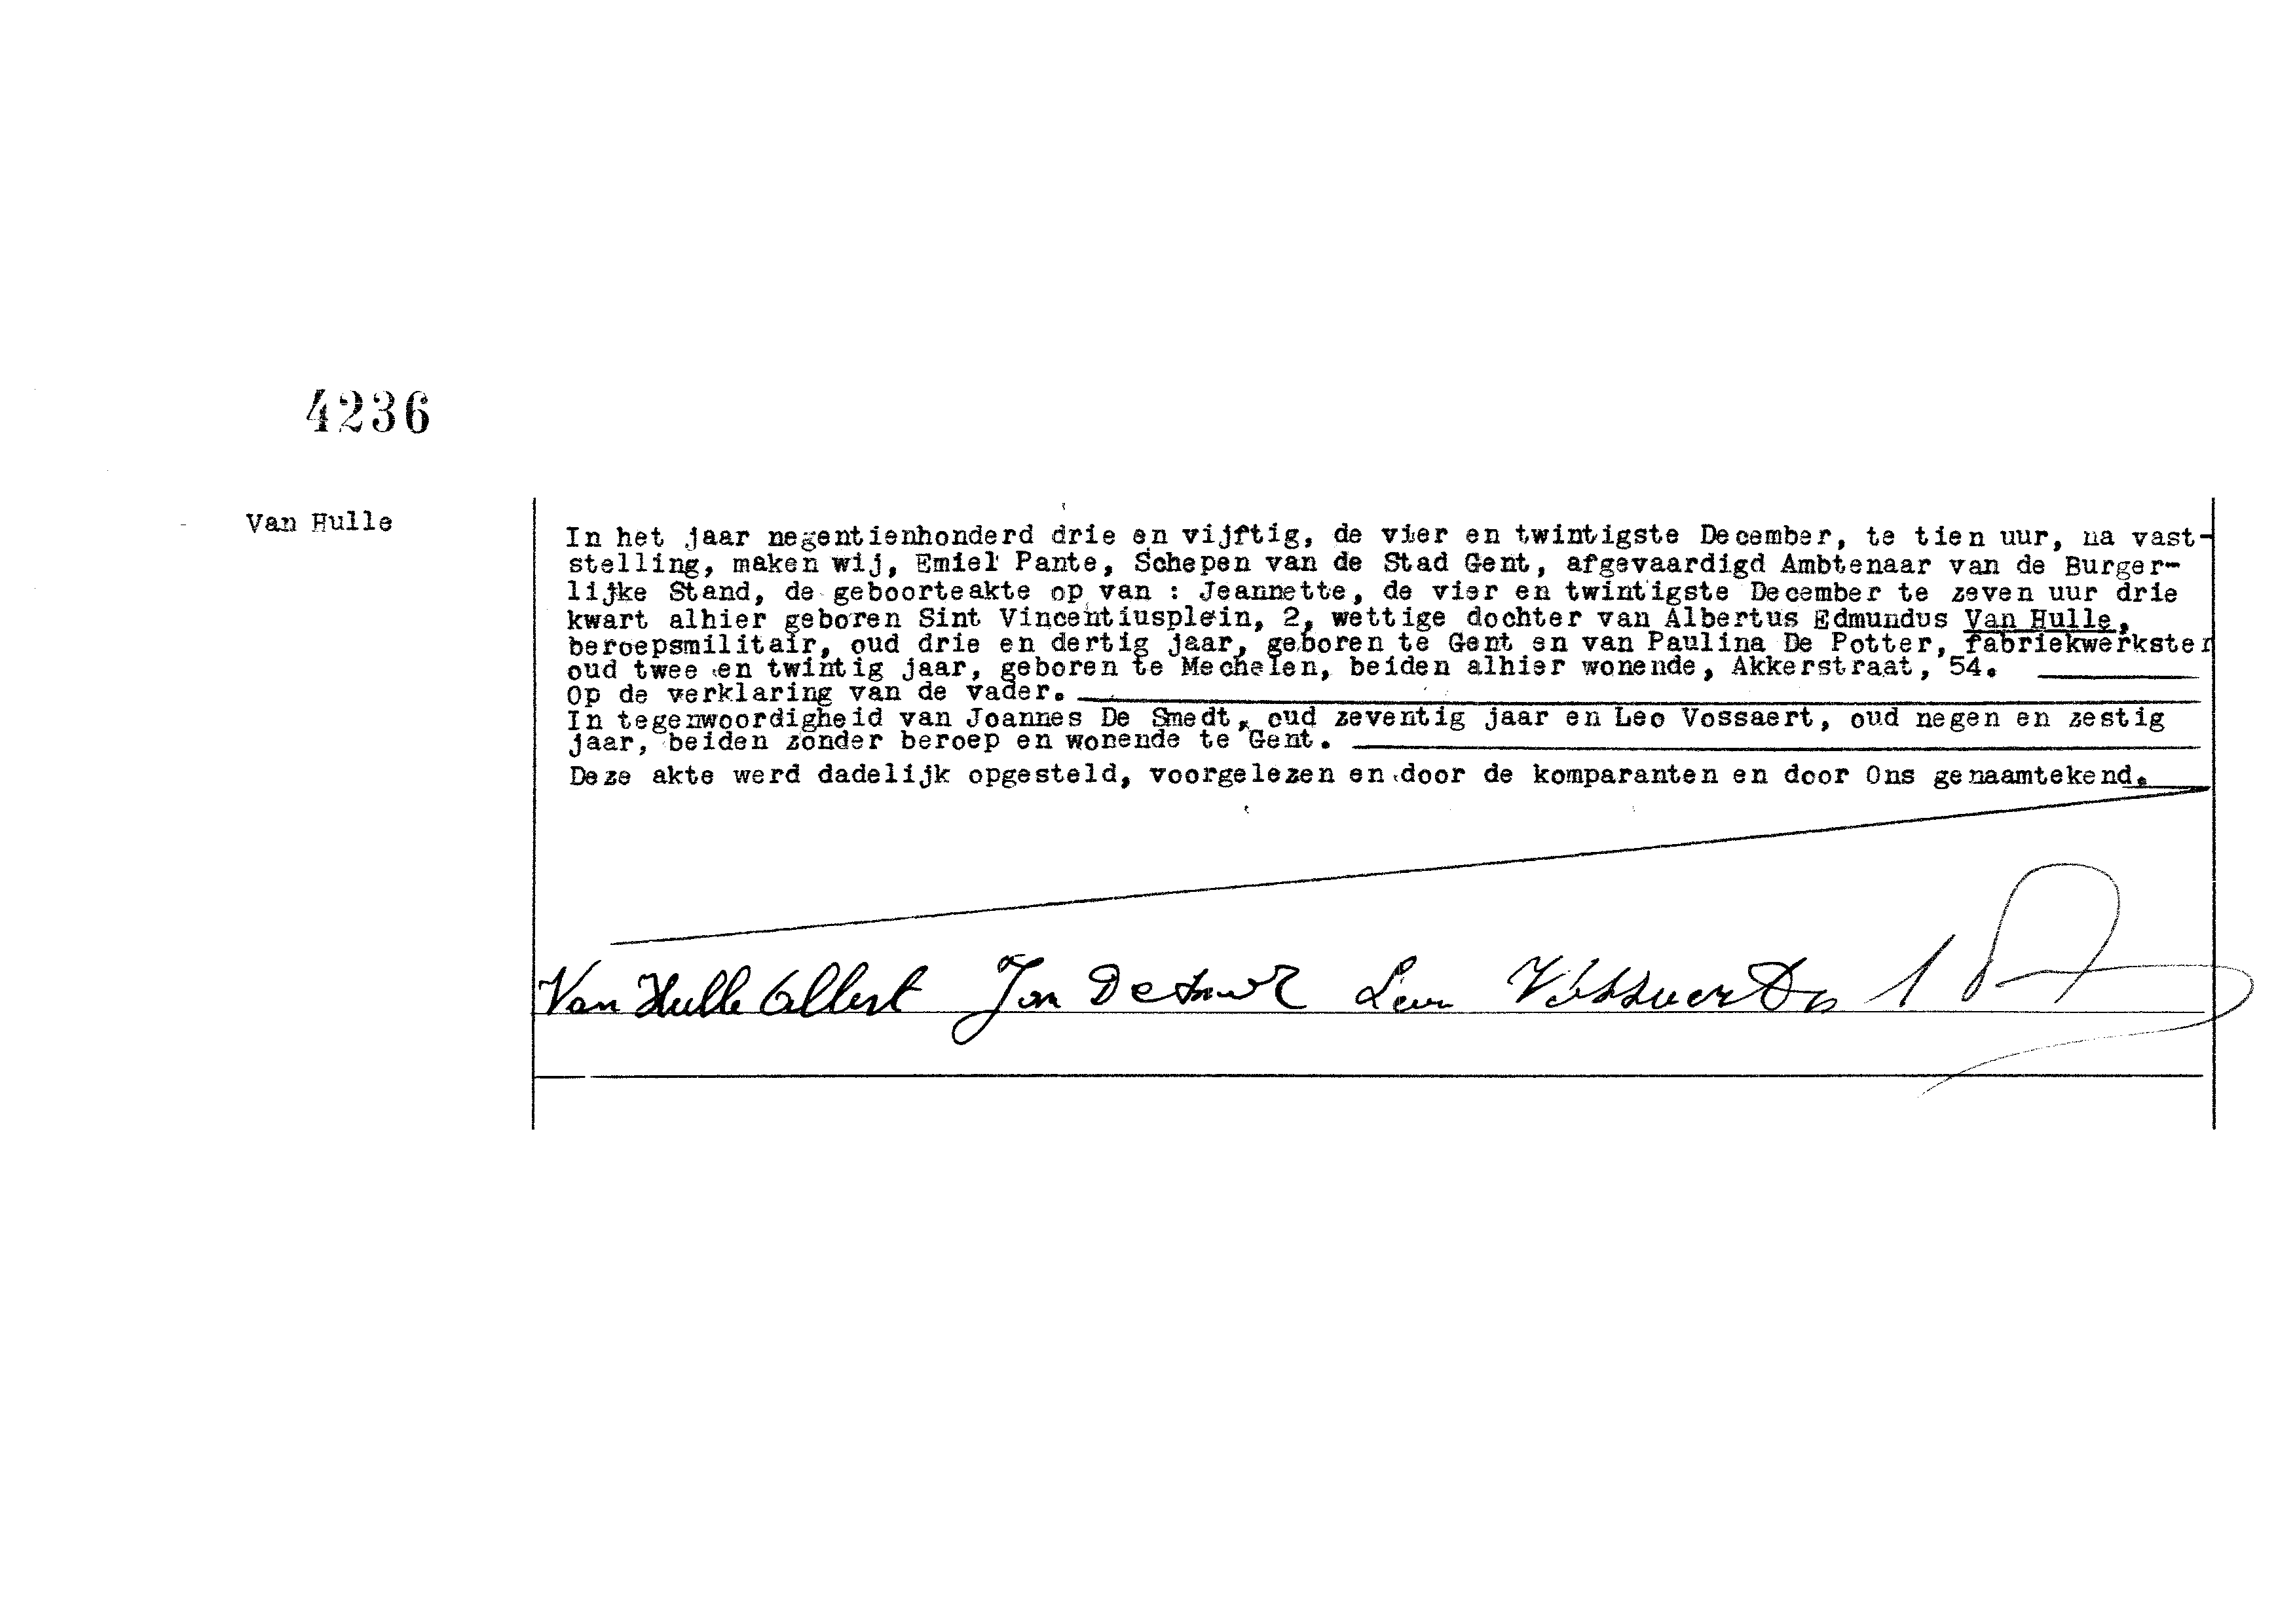 4236
Van Hulle
In het jaar negentienhonderd drie en vijftig, de vier en twintigste December, te tien uur, na vast-
stelling, maken wij, Emiel Pante, Schepen van de Stad Gent, afgevaardigd Ambtenaar van de Burger-
lijke Stand, de geboorteakte op van : Jeannette, de vier en twintigste December te zeven uur drie
kwart alhier geboren Sint Vincentiusplein, 2, wettige dochter van Albertus Edmundus Van Hulle,
beroepsmilitair, oud drie en dertig jaar, geboren te Gent en van Paulina De Potter, fabriekwerkster
oud twee en twintig jaar, geboren te Mechelen, beiden alhier wonende, Akkerstraat, 54.
Op de verklaring van de vader.
In tegenwoordigheid van Joannes De Smedt, oud zeventig jaar en Leo Vossaert, oud negen en zestig
jaar, beiden zonder beroep en wonende te Gent.
Deze akte werd dadelijk opgesteld, voorgelezen en door de komparanten en door Ons genaamtekend.
Van Hulle Albert Jan De Leon Vossaert